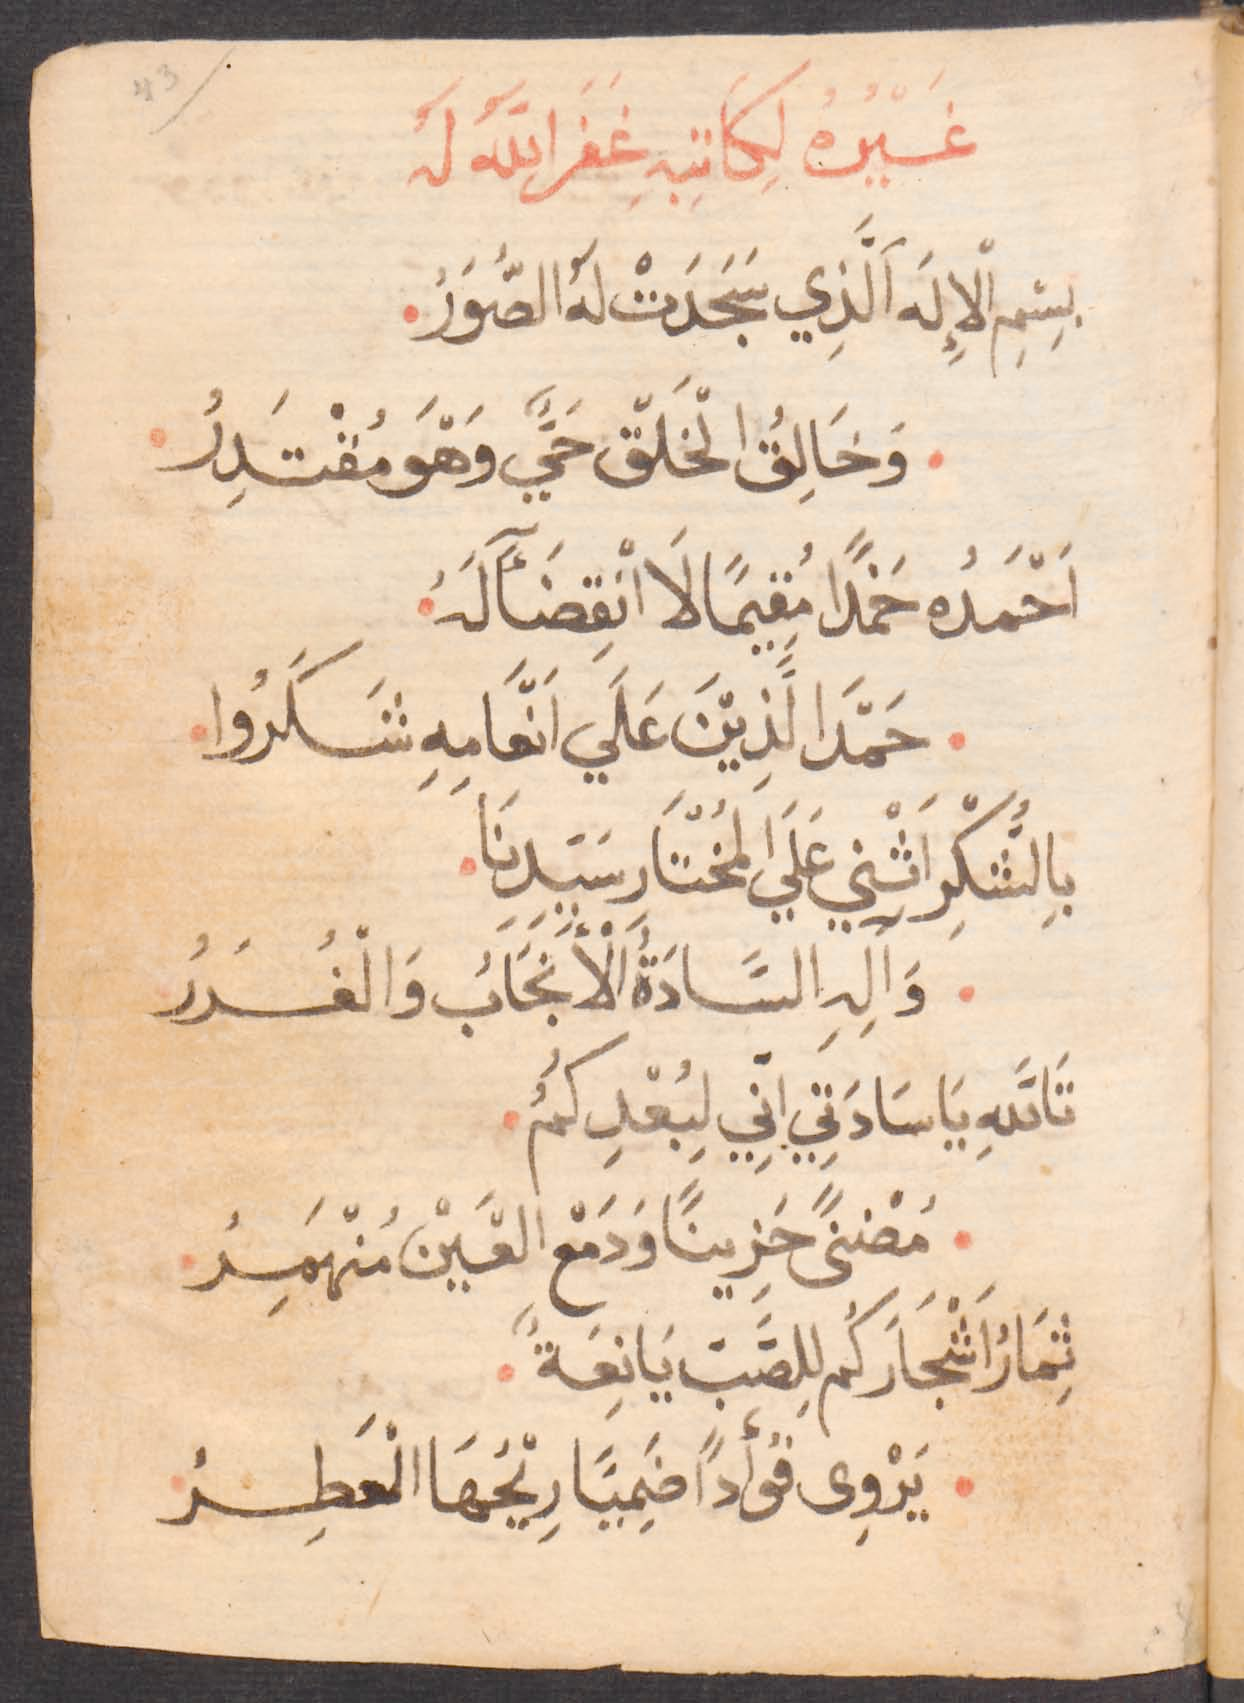 43
غَيْرُهُ لِكَاتِبِهِ غَفَرَ اللّٰهُ لَهُ
بِسْمِ الْإِلَهِ اَلَّذِي سَجَدَتْ لَهُ الصُّوَرُ
وَخَالِقُ الْخَلْقِ حَيٌّ وَهْوَ مُقْتَدِرُ
اَحْمَدُه حَمْدًا مُقِيمًا لَا انْقِضَآءَ لَهُ
حَمْدَ الَّذِيْنَ عَلَي اَنْعَامِهِ شَكَرُوا
بِالشُّكْرِ اَثْنِي عَلَي الْمُخْتَارِ سَيِّدِنَا
وَآلِهِ السَّادَةُ الْأَنْجَابُ وَالْغُرَرُ
تَاللّٰهِ يَا سَادَتِي اِنِّي لِبُعْدِكُمُ
مُضْنىً حَزِينًا وَدَمْعُ الْعَيْنِ مُنْهَمِرُ
ثِمَارُ اَشْجَارِكُم لِلصَّبِّ يَانِعَةٌ
يَرْوِى فُؤَأدًا ضَمِيَّا رِيْحُهَا الْعَطِرُ